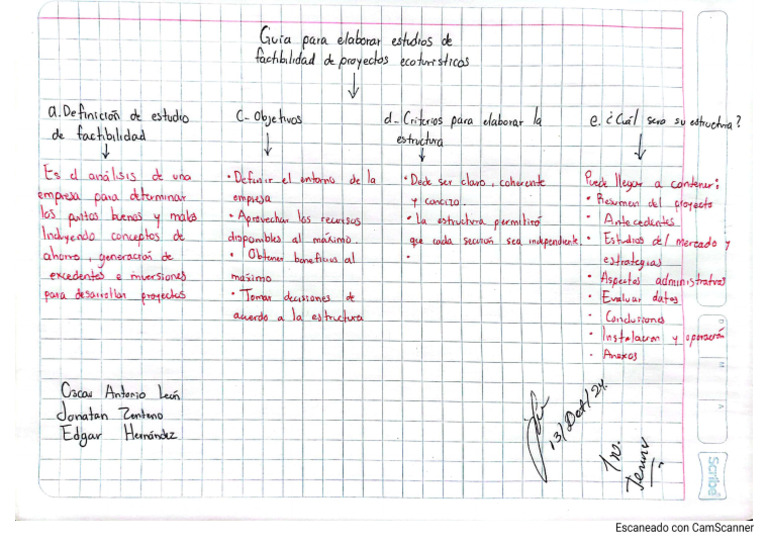 Guía para elaborar estudios de
factibilidad de proyectos ecoturísticos
a. Definición de estudio
de factibilidad
Es el análisis de una
empresa para determinar
los puntos buenos y malos
Incluyendo conceptos de
ahorro, generación de
excedentes e inversiones
para desarrollar proyectos
c- Objetivos
• Definir el entorno de la
empresa
• Aprovechar los recursos
disponibles al máximo.
• Obtener beneficios al
máximo
• Tomar decisiones de
acuerdo a la estructura
d- Criterios para elaborar la
estructura
• Debe ser claro, coherente
y concizo.
• La estructura permitirá
que cada sección sea independiente.
•
e. ¿Cuál sera su estructura?
Puede llegar a contener:
• Resumen del proyecto
• Antecedentes
• Estudios del mercado y
estrategias
• Aspectos administrativos
• Evaluar datos
• Conclusiones
• Instalacion y operación
• Anexos
Oscar Antonio León
Jonatan Zenteno
Edgar Hernández
13/Oct/24.
Scribe
Escaneado con CamScanner